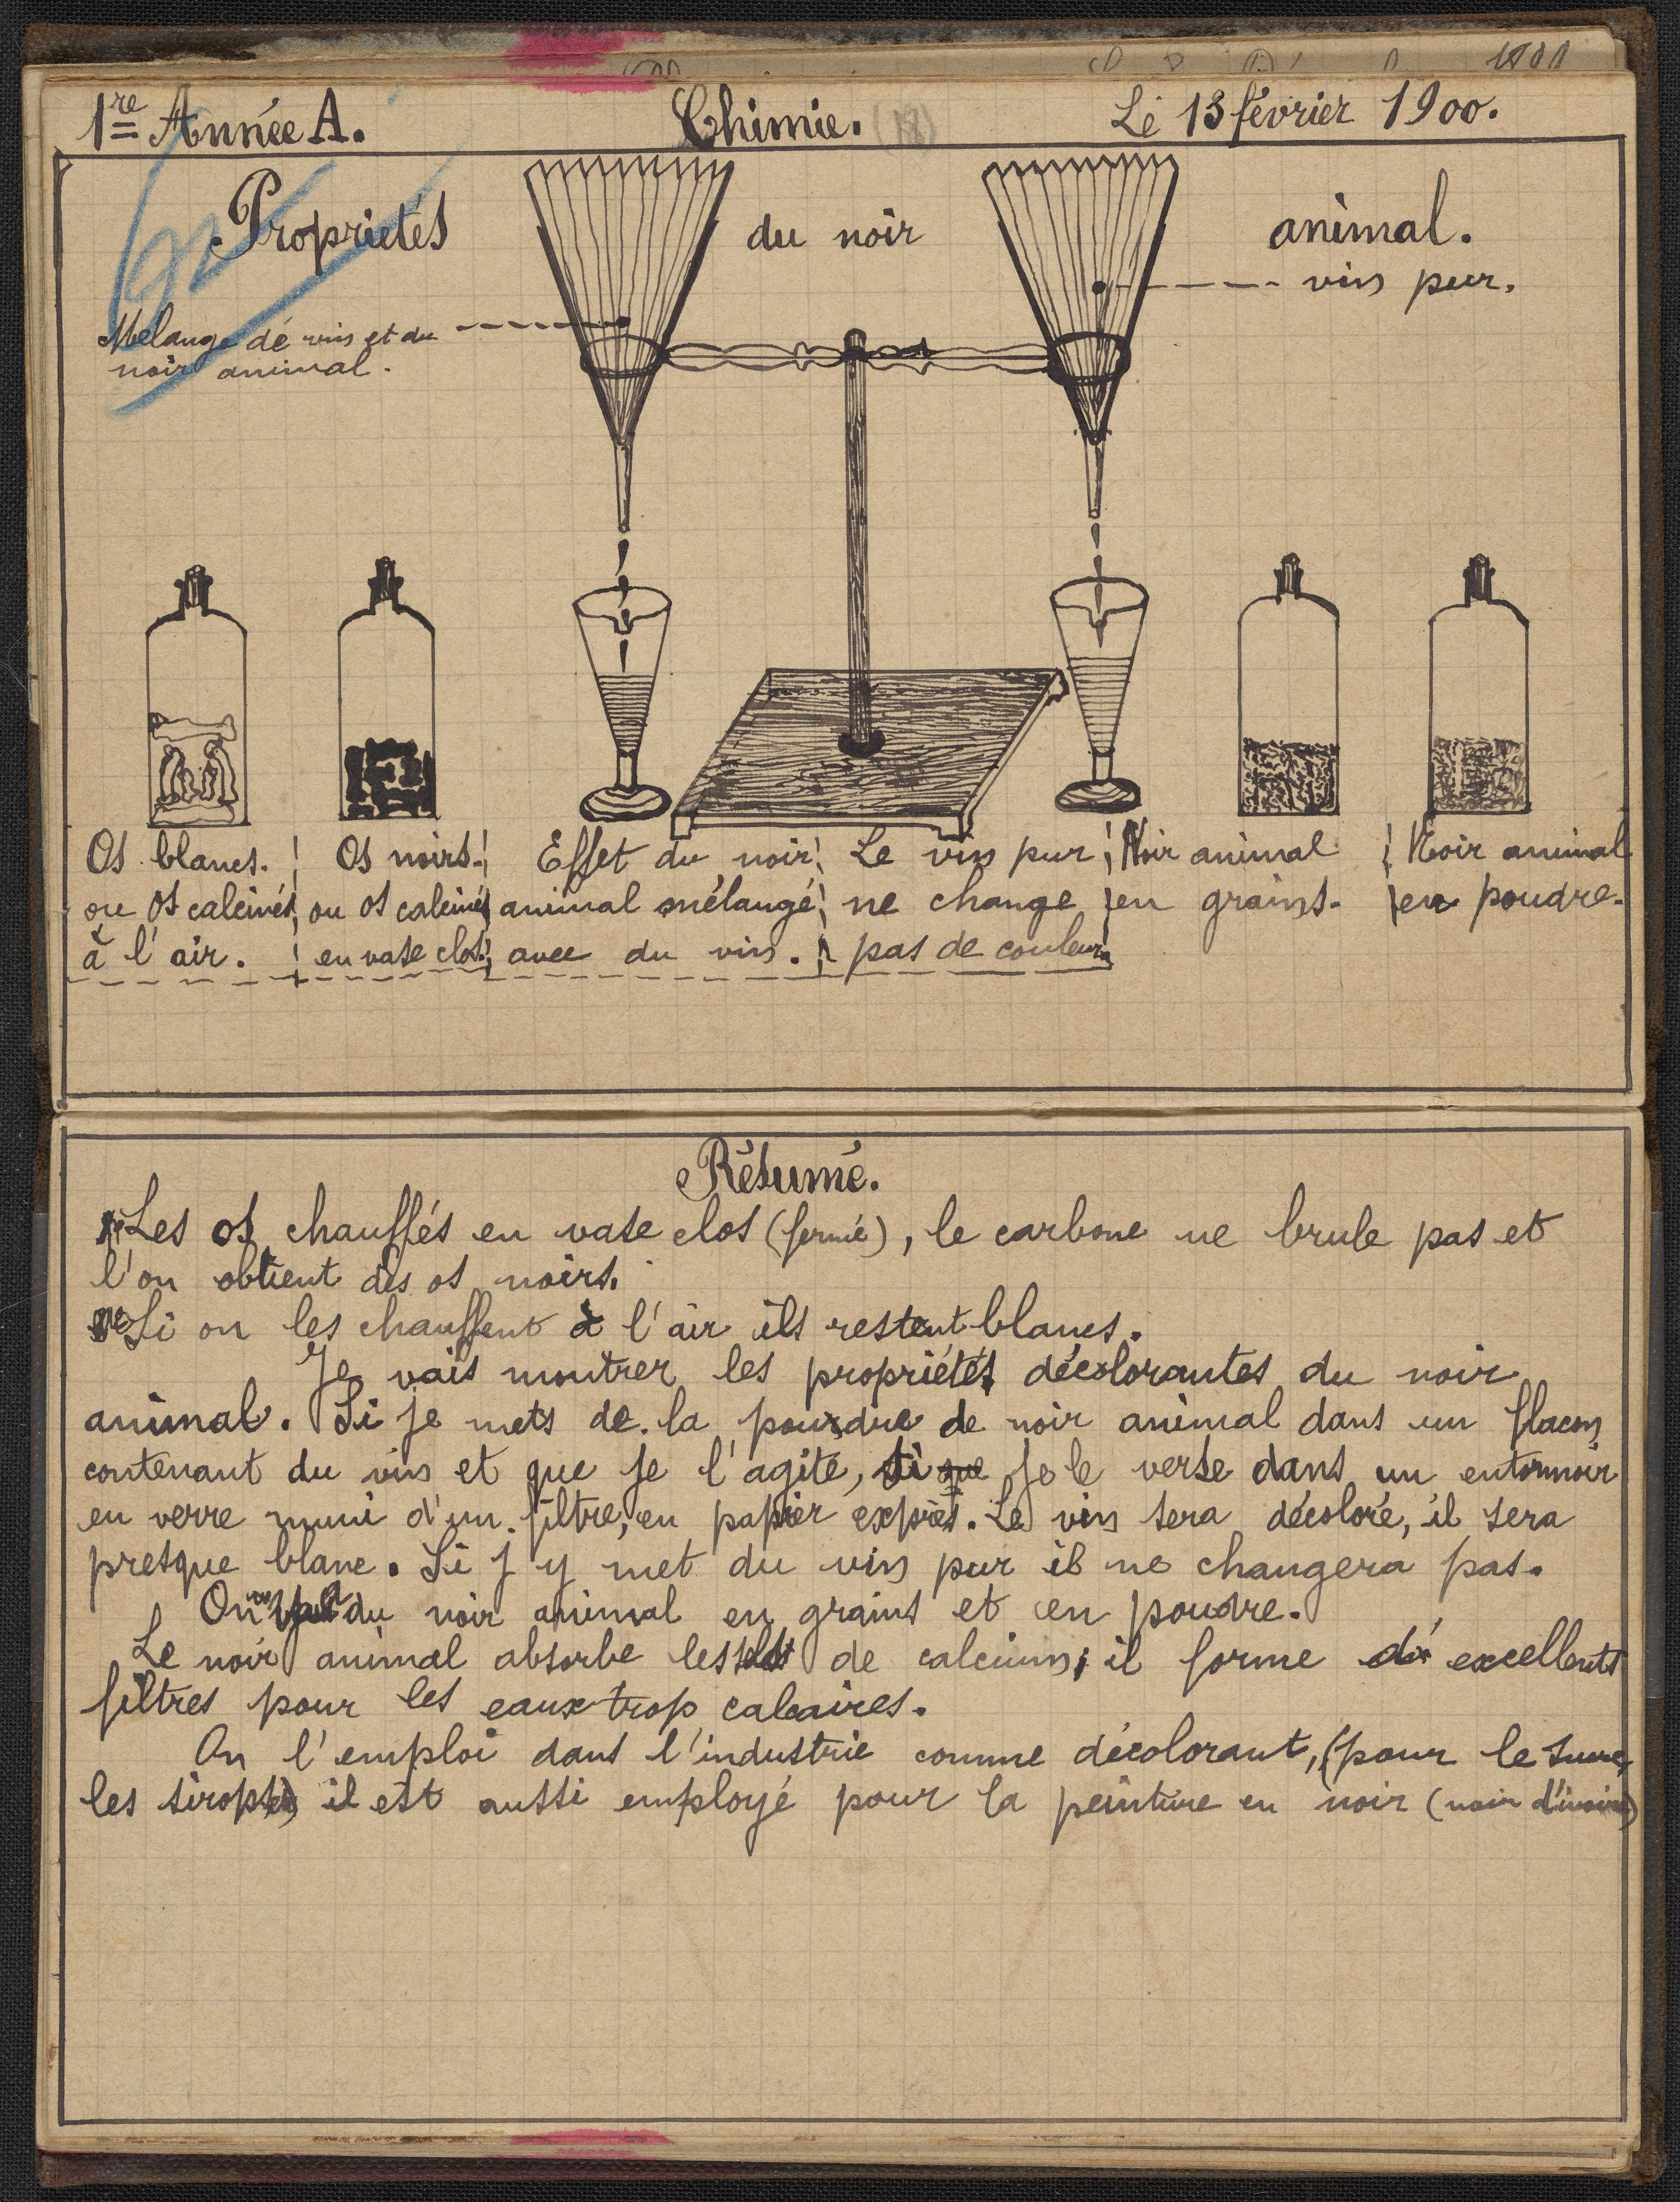 1re Année A. Chimie. (18) Le 13 février 1900.
Propriétés du noir animal.
vin pur.
Mélange de vin et du
noir animal.
Os blancs. Os noirs. Effet du noir Le vin pur Noir animal Noir animal
ou os calcinés ou os calcinés animal mélangé ne change en grains. en poudre.
à l'air. en vase clos. avec du vin. pas de couleur.
Résumé.
Les os chauffés en vase clos (fermé), le carbone ne brule pas et
l'on obtient des os noirs.
Si on les chauffent à l'air ils restent blancs.
Je vais montrer les propriétés décolorantes du noir
animal. Si je mets de la poudre de noir animal dans un flacon
contenant du vin et que je l'agite, si que je le verse dans un entonnoir
en verre muni d'un filtre, en papier exprès. Le vin sera décoloré, il sera
presque blanc. Si j'y met du vin pur il ne changera pas.
On du noir animal en grains et en poudre.
Le noir animal absorbe les sels de calcium; il forme d'excellents
filtres pour les eaux trop calcaires.
On l'emploi dans l'industrie comme décolorant, (pour le sucre,
les sirops) il est aussi employé pour la peinture en noir (noir d'ivoire)